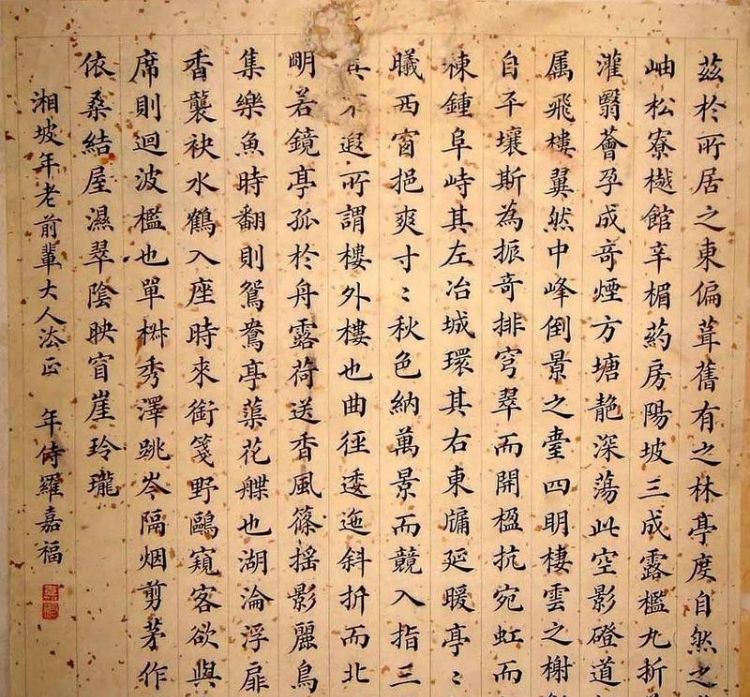 茲於所居之東偏葺舊有之林亭度自然之
岫松寮樾館辛楣葯房陽坡三成露檻九折
灌翳薈孕成竒煙方塘靘深蕩此空影磴道
属飛樓翼然中峰倒景之臺四明棲雲之榭
自平壤斯為振竒排穹翠而開楹抗宛虹而
棟鍾阜峙其左冶城環其右東牖延暖亭〻
曦西窗挹爽寸〻秋色納萬景而競入指三
不遐所謂樓外樓也曲徑逶迤斜折而北
明若鏡亭孤於舟露荷送香風篠搖影麗鳥
集樂魚時翻則鴛鴦亭蕖花艓也湖淪浮扉
香襲袂水鶴入座時來銜箋野鷗窺客欲與
席則迴波檻也單椒秀澤跳岑隔烟剪茅作
依桑結屋濕翠陰映窅崖玲瓏
湘坡年老前輩大人法正 年侍羅嘉福